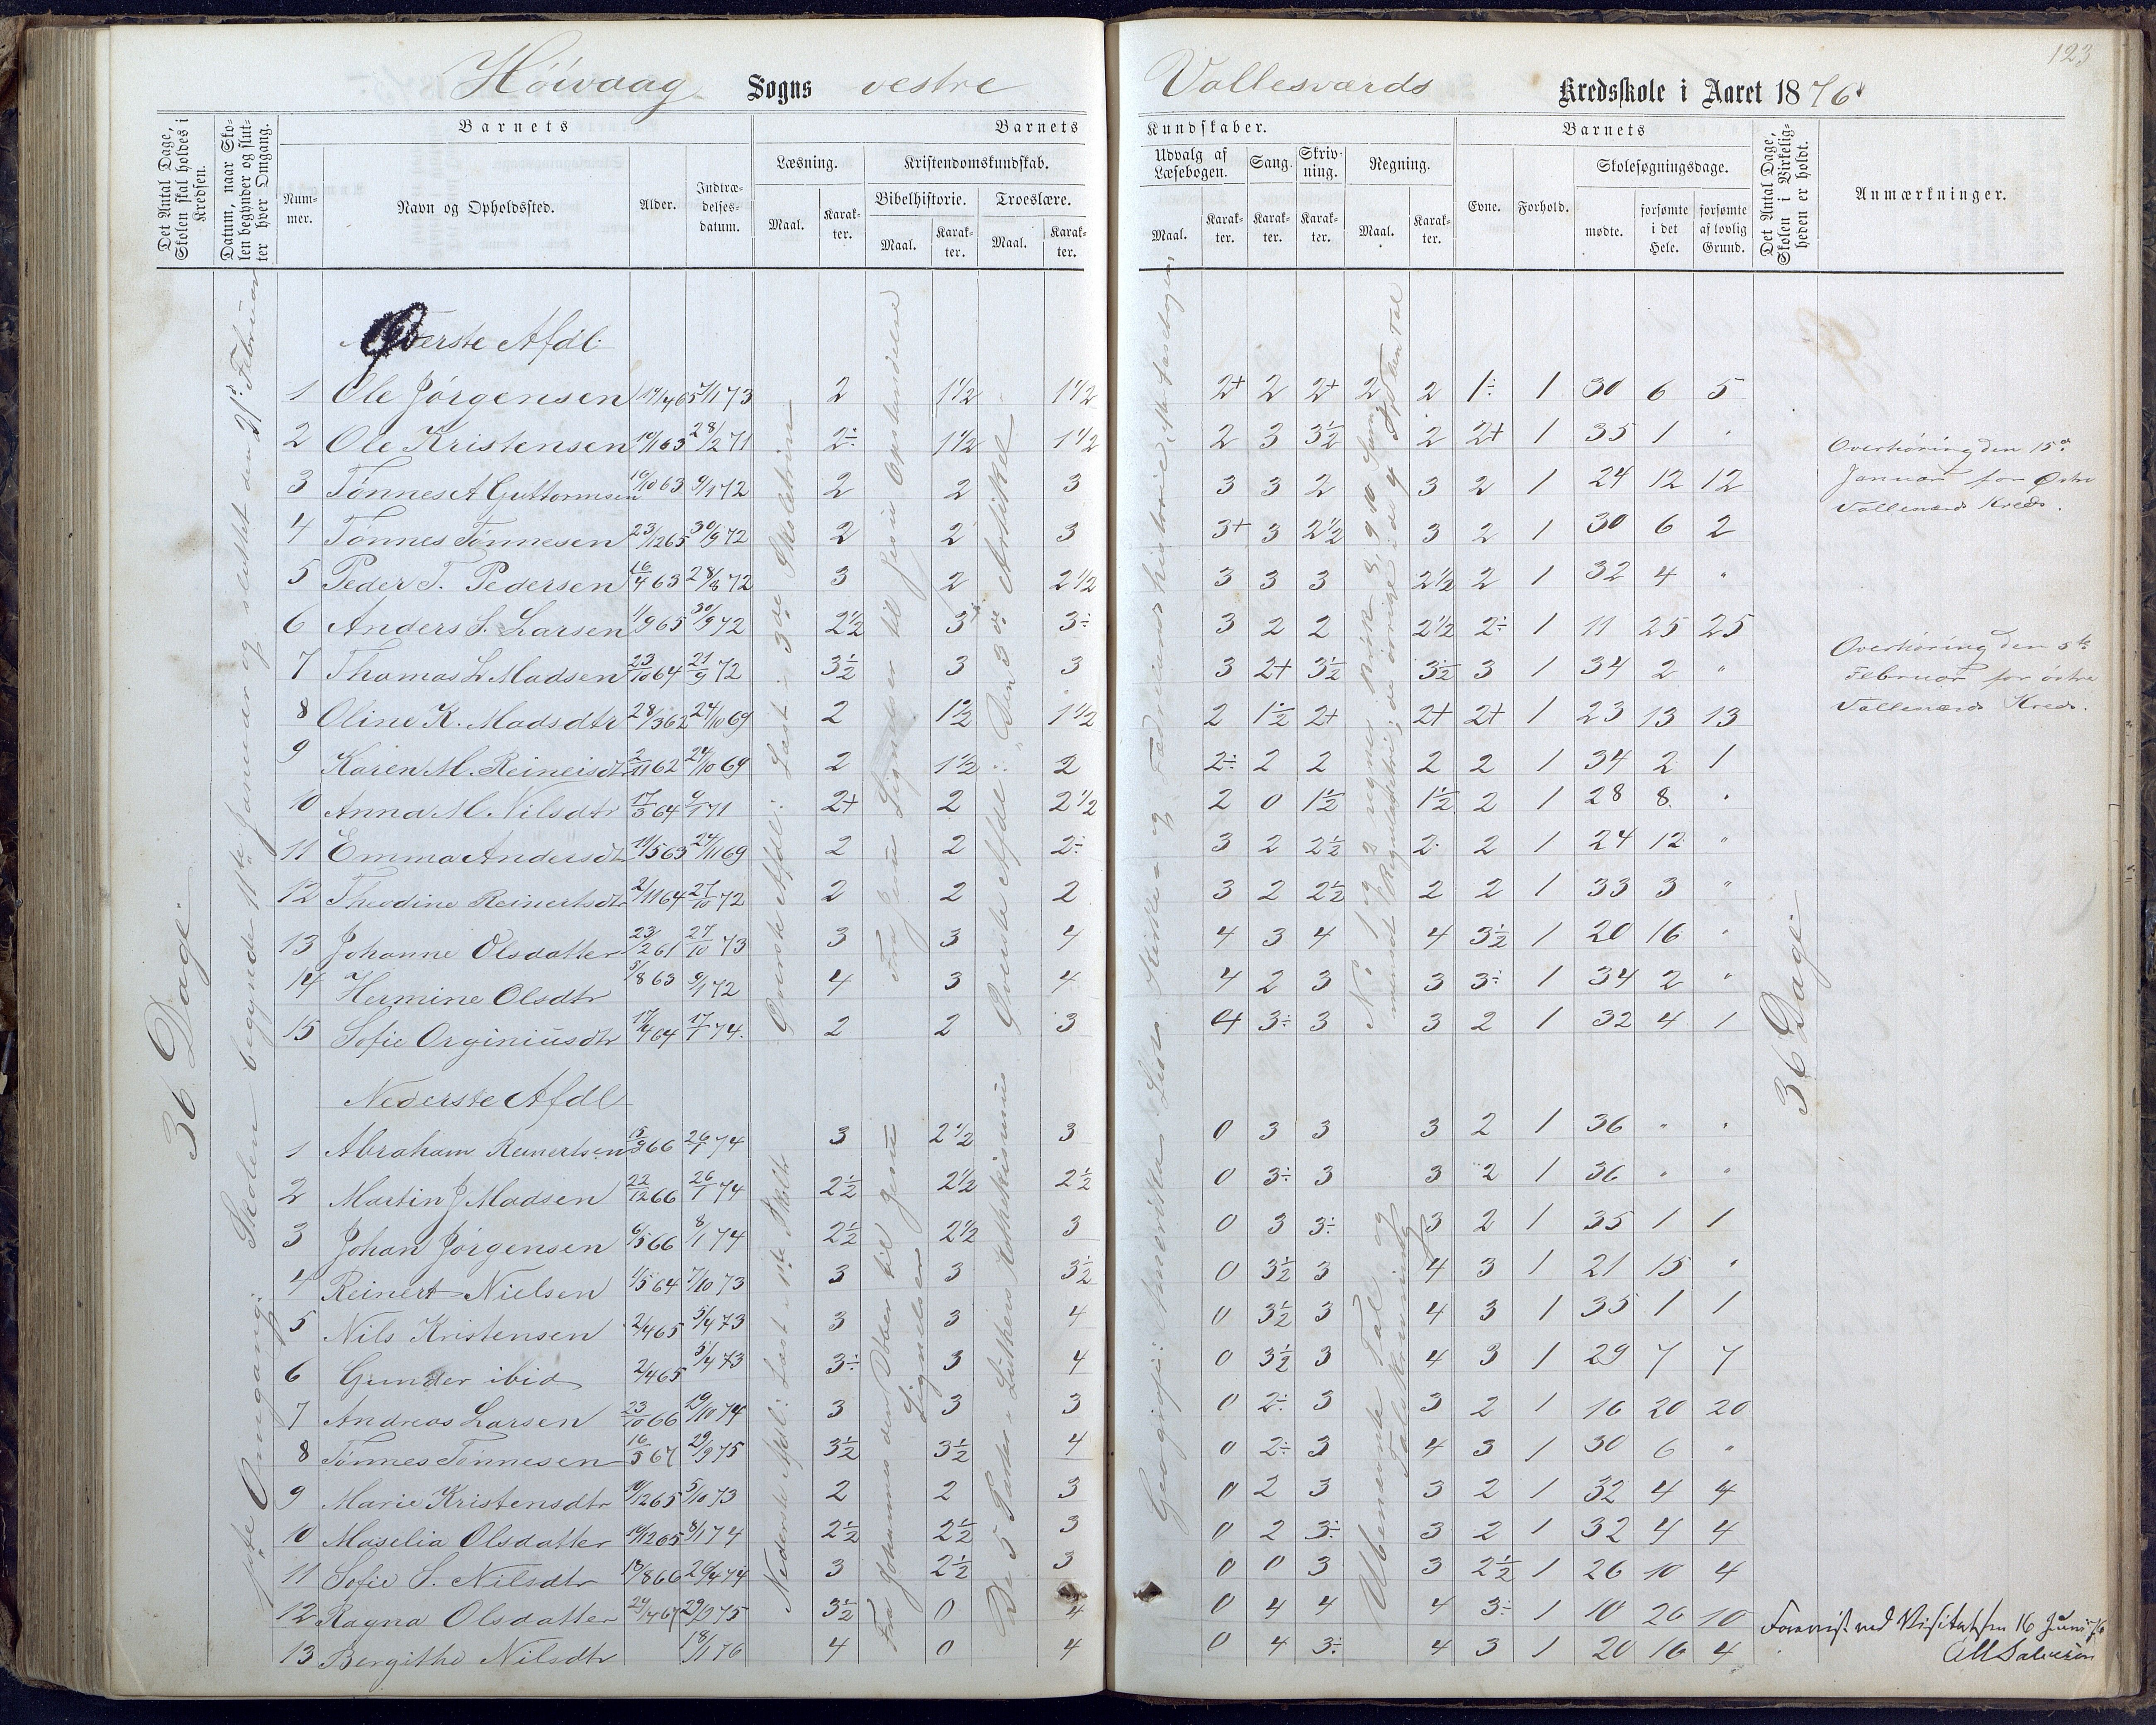 123
Höivaag Sogns vestre Vallesværds Kredsskole i Aaret 1876
Det Antal Dage, Skolen skal holdes i Kredsen.
Datum, naar Skolen begynder og slutter hver Omgang.
Barnets
Nummer.
Navn og Opholdssted.
Alder.
Indtrædelsesdatum.
Barnets Kundskaber.
Læsning.
Maal. Karakter.
Kristendomskundskab.
Bibelhistorie.
Maal. Karakter.
Troeslære.
Maal. Karakter.
Udvalg af Læsebogen.
Maal. Karakter.
Sang.
Karakter.
Skrivning.
Karakter.
Regning.
Maal. Karakter.
Barnets
Evne. Forhold.
Skolesøgningsdage.
mødte. forsømte i det Hele. forsømte af lovlig Grund.
Det Antal Dage, Skolen i Virkeligheden er holdt.
Anmærkninger.
36 Dage
1ste Omgang: Skolen begyndte 11te Januar og sluttet den 21de Februar
Øverste Afdl:
1 Ole Jørgensen 5/1 73 2 1 1/2 1 1/2 2+ 2 2+ 2 2 1÷ 1 30 6 5
2 Ole Kristensen 28/2 71 2÷ 1 1/2 1 1/2 2 3 3 1/2 2 2+ 1 35 1 "
3 Tønnes A Guttormsen 19/10 63 9/1 72 2 2 3 3 3 2 3 2 1 24 12 12
4 Tønnes Tønnesen 23/12 65 30/9 72 2 2 3 3+ 3 2 1/2 3 2 1 30 6 2
5 Peder T. Pedersen 16/4 63 28/8 72 3 2 2 1/2 3 3 3 2 1/2 2 1 32 4 "
6 Anders S. Larsen 1/9 65 30/9 72 2 1/2 3 3÷ 3 2 2 2 1/2 2÷ 1 11 25 25
7 Thomas L Madsen 23/10 64 21/9 72 3 1/2 3 3 3 2+ 3 1/2 3 1/2 3 1 34 2 "
8 Oline K. Madsdtr 28/3 62 24/10 69 2 1 1/2 1 1/2 2 1 1/2 2+ 2+ 2+ 1 23 13 13
9 Karen M. Reineisdtr 2/11 62 24/10 69 2 1 1/2 2 2÷ 2 2 2 2 1 34 2 1
10 Anna M. Nilsdtr 17/3 64 9/1 71 2+ 2 2 1/2 2 0 1 1/2 1 1/2 2 1 28 8 "
11 Emma Andersdt 11/5 63 24/11 69 2 2 2÷ 3 2 2 1/2 2 2 1 24 12 "
12 Theodine Reinertsdtr 2/11 64 27/10 72 2 2 2 3 2 2 1/2 2 2 1 33 3 "
13 Johanne Olsdatter 23/2 61 27/10 73 3 3 4 4 3 4 4 3 1/2 1 20 16 "
14 Hermine Olsdtr 5/8 63 9/1 72 4 3 4 4 2 3 3 3÷ 1 34 2 "
15 Sofie Orginiusdtr 17/4 64 17/1 74 2 2 3 4 3÷ 3 3 2 1 32 4 1
Øverste Afdl: Læst i 3de Skoletrin
fra Jesu Lignelser til Jesu Opstandelse
Øverste Afdl: Den 3de Artikel
36 Dage
Overhøring den 15de
Januar for Østre
Vallesværds Kreds.
Overhøring den 5te
Februar for østre
Vallesværds Kreds.
Nederste Afdl
1 Abraham Reinertsen 15/9 66 26/1 74 3 2 1/2 3 0 3 3 3 2 1 36 " "
2 Martin J Madsen 22/12 66 26/1 74 2 1/2 2 1/2 2 1/2 0 3÷ 3 3 2 1 36 " "
3 Johan Jørgensen 6/5 66 8/1 74 2 1/2 2 1/2 3 0 3 3÷ 3 2 1 35 1 1
4 Reinert Nielsen 1/5 64 7/10 73 3 3 3 1/2 0 3 1/2 3 4 3 1 21 15 "
5 Nils Kristensen 2/4 65 5/4 73 3 3 4 0 3 1/2 3 4 3 1 35 1 1
6 Gunder ibid 2/4 65 5/4 73 3÷ 3 4 0 3 1/2 3 4 3 1 29 7 7
7 Andreas Larsen 23/10 66 19/10 74 3 3 3 0 2÷ 3 3 2 1 16 20 20
8 Tønnes Tønnesen 16/5 67 29/9 75 3 1/2 3 1/2 4 0 2÷ 3 4 3 1 30 6 "
9 Marie Kristensdtr 10/12 65 5/10 73 2 2 3 0 2 3 3 2 1 32 4 4
10 Maselia Olsdatter 19/12 65 8/1 74 2 1/2 2 1/2 3 0 2 3÷ 3 2 1 32 4 4
11 Sofie S. Nilsdtr 13/8 66 26/4 74 3 2 1/2 3 0 0 3 3 2 1/2 1 26 10 4
12 Ragna Olsdatter 24/4 67 29/9 75 3 1/2 0 4 0 4 4 4 3÷ 1 10 26 10
13 Bergithe Nilsdtr 18/1 76 4 0 4 0 4 3÷ 4 3 1 20 16 4
Nederste Afdl: Læst 1ste Skolt
Fra Johannes den Døber til Jesu Lignelser
De 5 Parter i Luthers Katekismus
Ubenævnte Tal og Taleskrivning
Forevist ved Visitatsen 16 Juni 76